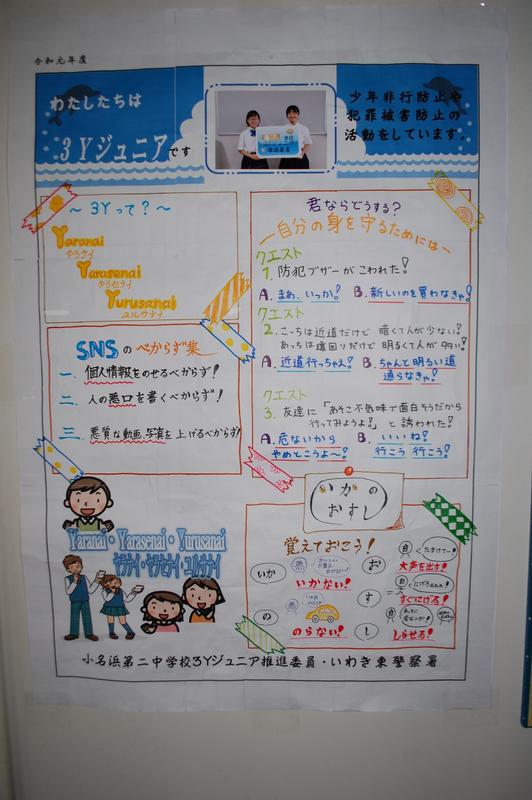 令和元年度
わたしたちは
3Yジュニアです
少年非行防止や
犯罪被害防止の
活動をしています。
3Yジュニア
推進委員
～3Yって?～
Yaranai
ヤラナイ
Yarasenai
ヤラセナイ
Yurusanai
ユルサナイ
SNSのべからず集
一、個人情報をのせるべからず!
二、人の悪口を書くべからず!
三、悪質な動画、写真を上げるべからず!
君ならどうする?
ー自分の身を守るためにはー
クエスト
1. 防犯ブザーがこわれた!
A. まぁ、いっか! B. 新しいのを買わなきゃ!
クエスト
2. こっちは近道だけど 暗くて人が少ない!
あっちは遠回りだけど 明るくて人が多い!
A. 近道行っちゃえ! B. ちゃんと明るい道
通らなきゃ!
クエスト
3. 友達に「あそこ不気味で面白そうだから
行ってみようよ!」と誘われた!
A. 危ないから
やめとこうよ～! B. いいね!
行こう 行こう!
いかの
おすし
覚えておこう!
いか
いかない!
の
のらない!
お
大声を出す!
す
すぐにげる!
し
しらせる!
Yaranai・Yarasenai・Yurusanai
ヤラナイ・ヤラセナイ・ユルサナイ
小名浜第二中学校3Yジュニア推進委員・いわき東警察署